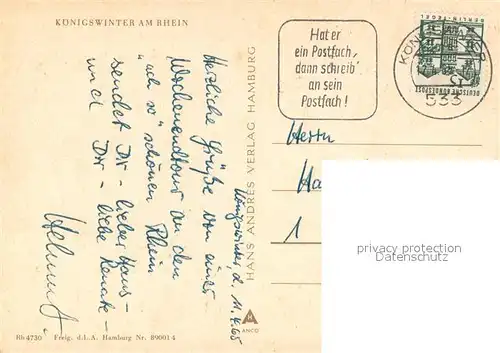 KÖNIGSWINTER AM RHEIN
Hat er
ein Postfach,
dann schreib'
an sein
Postfach!
BERLIN-TEGEL
DEUTSCHE BUNDESPOST
533
Königswinter, d. 11.4.65
Herzliche Grüße von einer
Wochenendtour an den
"ach so" schönen Rhein
sendet Dir - lieber Hans -
und Dir - liebe Renate -
Helmut
HANS ANDRES VERLAG HAMBURG
ANCO
Herrn
1
privacy protection
watermark
Rh 4730 Freig. d. L. A. Hamburg Nr. 89001 4